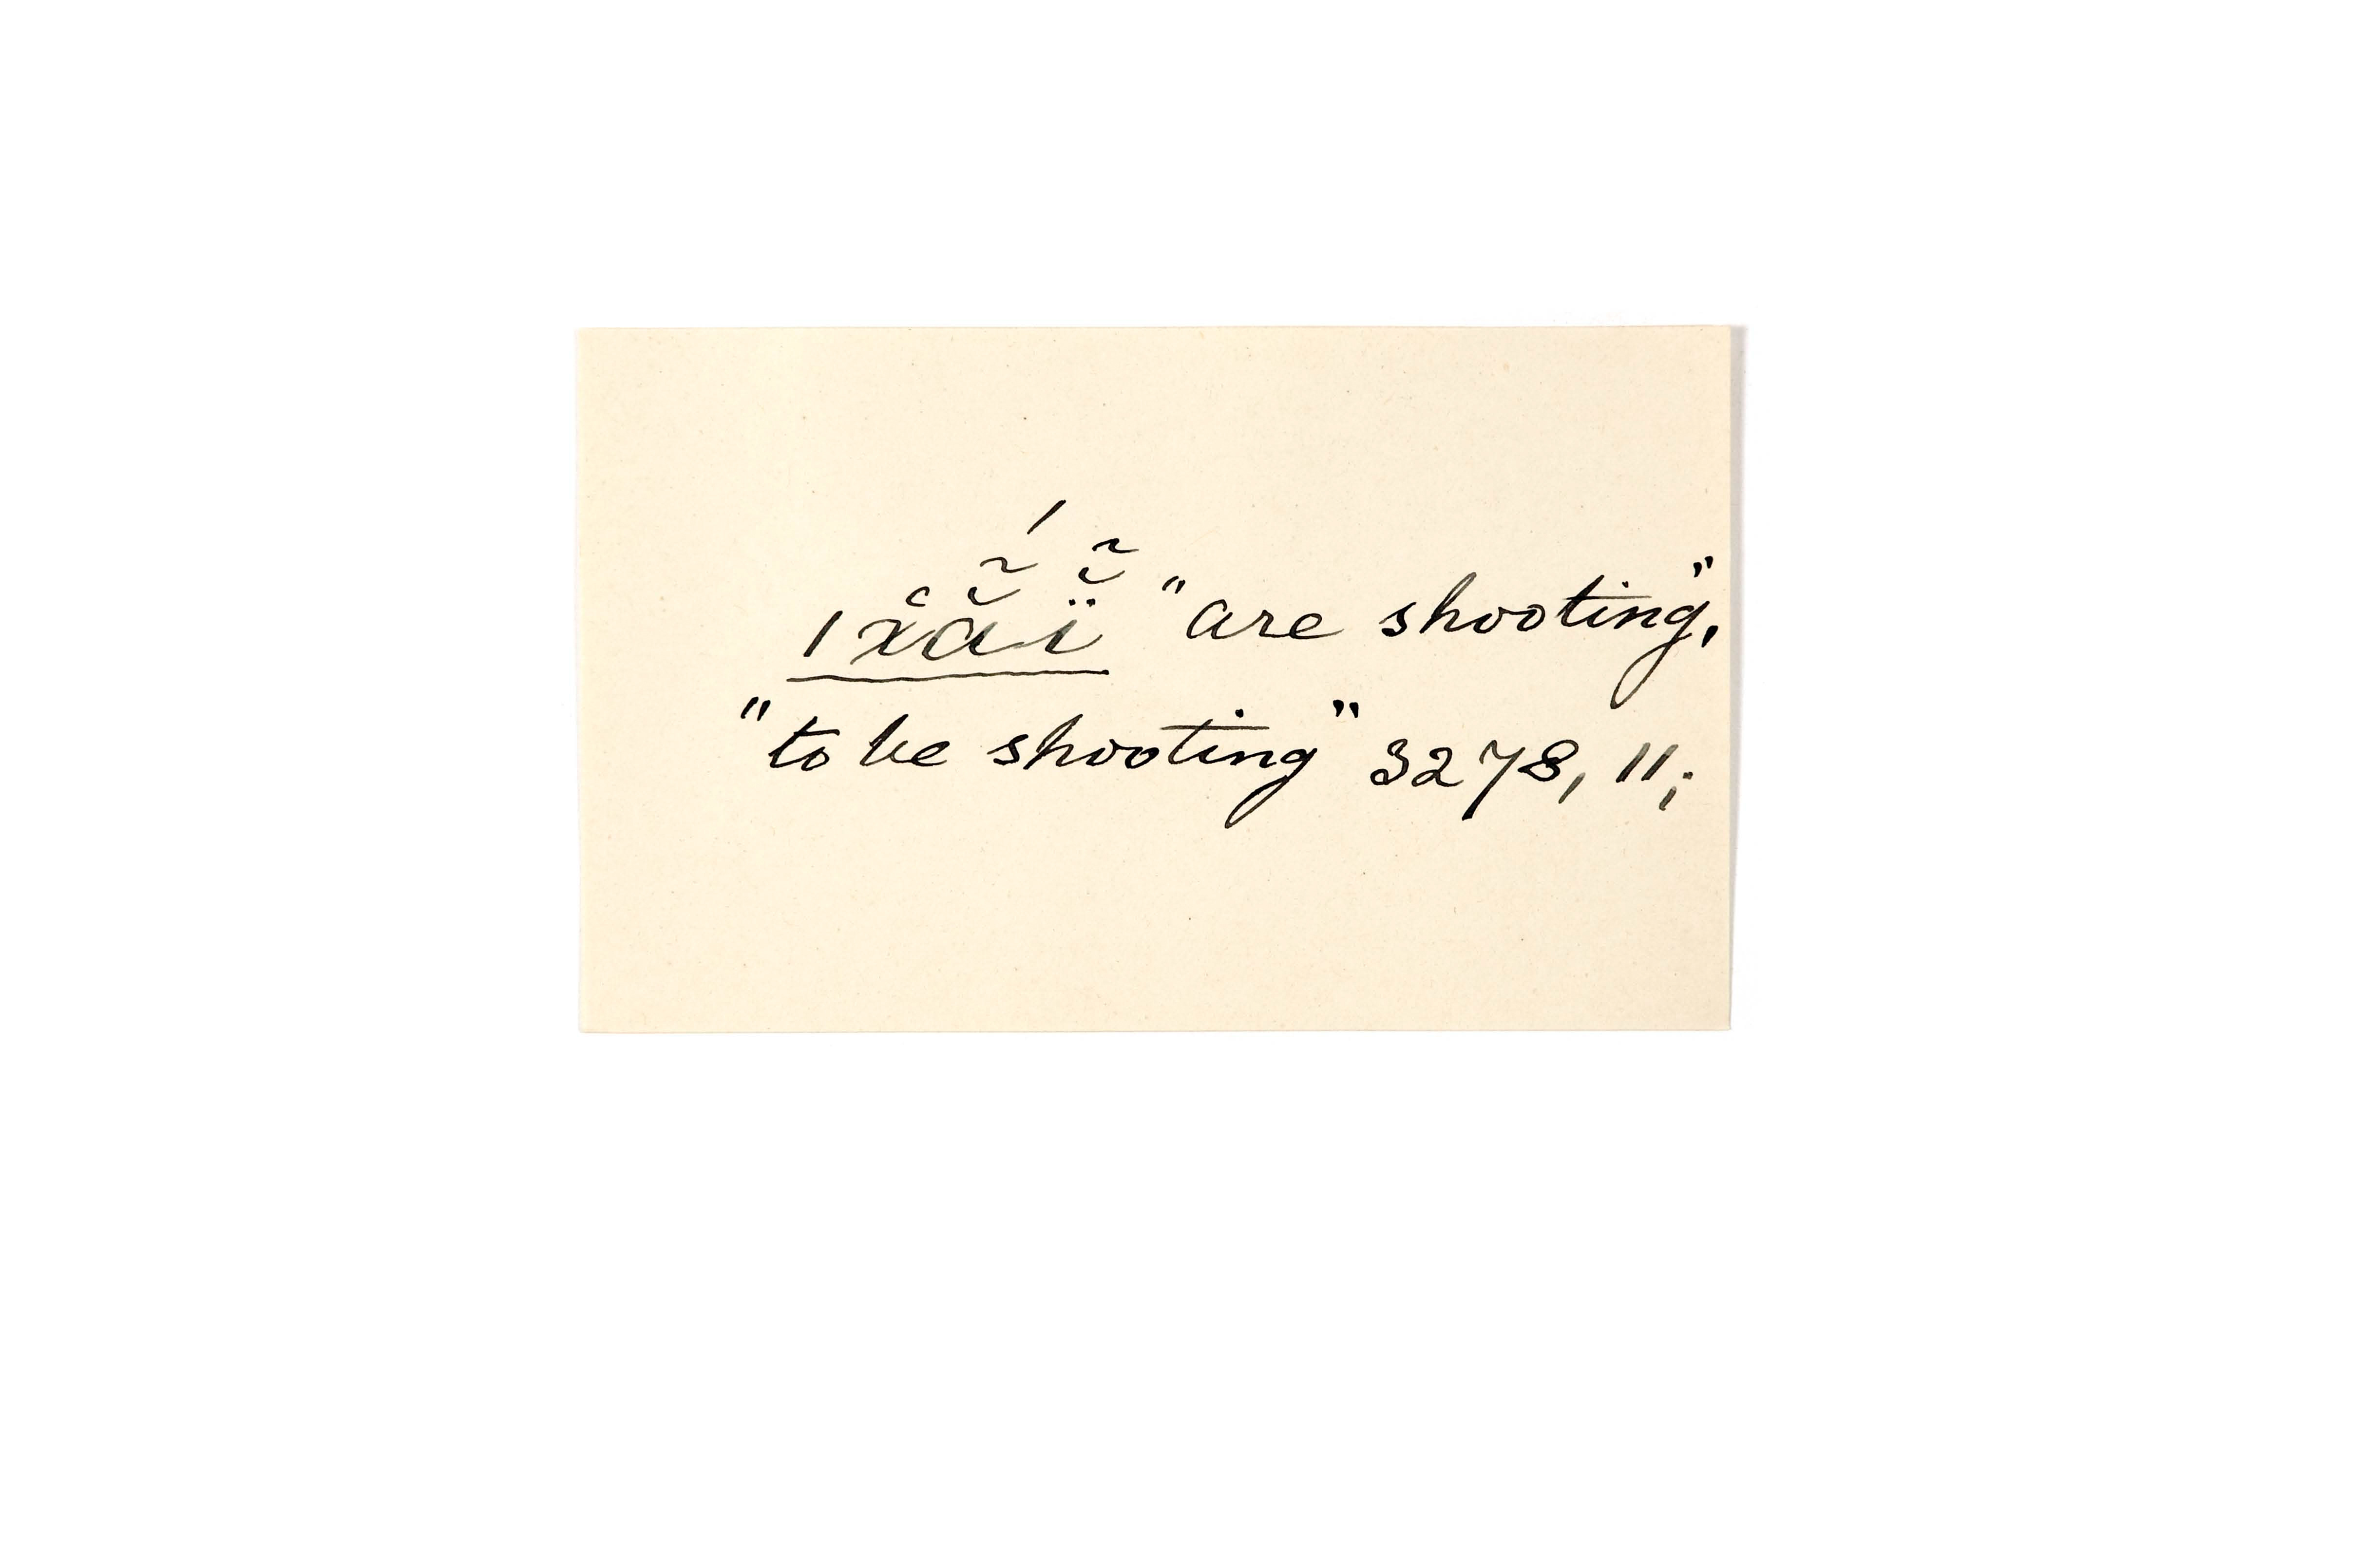 /x̔ằ̃́ĭ̈̃ "are shooting",
"to be shooting" 3278, 11;